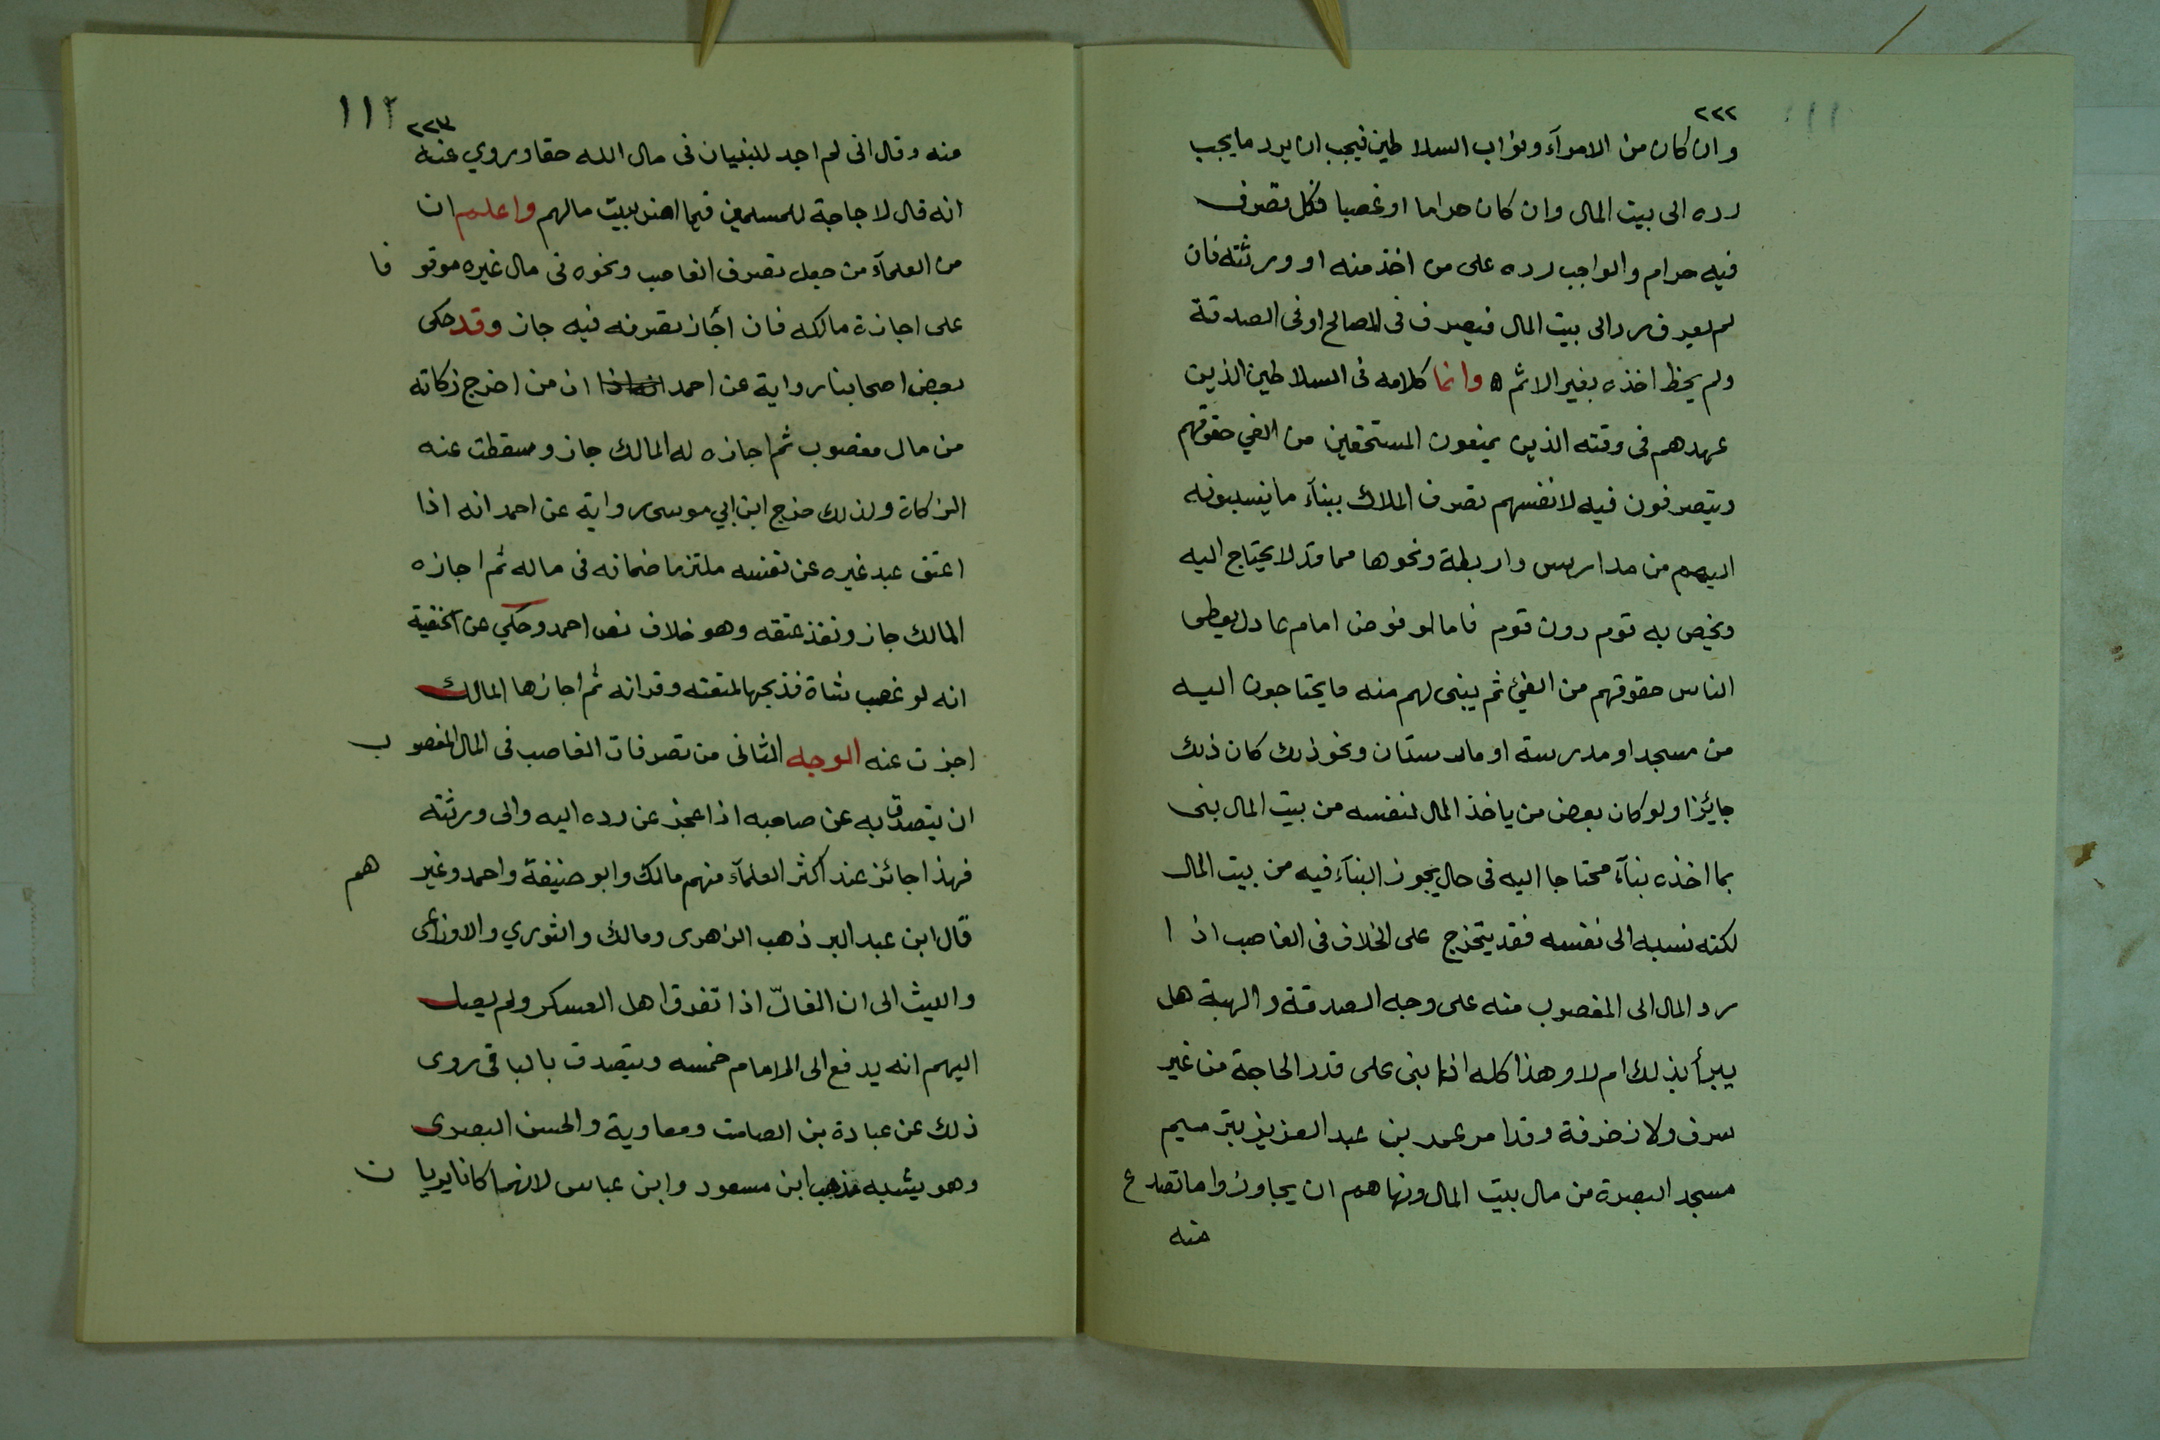 ٢٢٢
وان كان من الامرآء ونواب السلاطين فيجب ان يرد ما يجب
رده الى بيت المال وان كان حراما او غصبا فكل تصرف
فيه حرام والواجب رده على من اخذ منه او ورثته فان
لم يعرف رد الى بيت المال فيصرف فى المصالح او فى الصدقة
ولم يحظ اخذه بغير الاثم ه وانما كلامه فى السلاطين الذين
عهدهم فى وقته الذين يمنعون المستحقين من الفي حقوقهم
ويتصرفون فيه لانفسهم تصرف الملاك ببنآء ما ينسبونه
اليهم من مدارس واربطة ونحوها مما قد لا يحتاج اليه
ويخص به قوم دون قوم فاما لو فرض امام عادل يعطى
الناس حقوقهم من الفيئ ثم يبنى لهم منه ما يحتاجون اليه
من مسجد او مدرسة او مارستان ونحو ذلك كان ذلك
جائزا ولو كان بعض من ياخذ المال لنفسه من بيت المال بنى
بما اخذه بنآء محتاجا اليه فى حال يجوز البنآء فيه من بيت المال
لكنه نسبه الى نفسه فقد يتخرج على الخلاف فى الغاصب اذا
رد المال الى المغصوب منه على وجه الصدقة والهبة هل
يبرأ بذلك ام لا وهذا كله اذا بنى على قدر الحاجة من غير
سرف ولا زخرفة وقد امر عمر بن عبد العزيز بترميم
مسجد البصرة من مال بيت المال ونهاهم ان يجاوزوا ما تصدع
منه
١١٢
٢٢٣
منه وقال انى لم اجد للبنيان فى مال الله حقا وروي عنه
انه قال لا حاجة للمسلمين فيما اضر ببيت مالهم واعلم ان
من العلمآء من جعل تصرف الغاصب ونحوه فى مال غيره موقوفا
على اجازة مالكه فان اجاز تصرفه فيه جاز وقد حكى
بعض اصحابنا رواية عن احمد انه اذا ان من اخرج زكاته
من مال مغصوب ثم اجازه له المالك جاز وسقطت عنه
الزكاة ولذلك خرج ابن ابي موسى رواية عن احمد انه اذا
اعتق عبد غيره عن نفسه ملتزما ضمانه فى ماله ثم اجازه
المالك جاز ونفذ عتقه وهو خلاف نص احمد وحكي عن الحنفية
انه لو غصب شاة فذبحها لمتعته وقرانه ثم اجازها المالك
اجزت عنه الوجه الثانى من تصرفات الغاصب فى المال المغصوب
ان يتصدق به عن صاحبه اذا عجز عن رده اليه والى ورثته
فهذا جائز عند اكثر العلمآء منهم مالك وابو حنيفة واحمد وغيرهم
قال ابن عبد البر ذهب الزهرى ومالك والثوري والاوزاعى
والليث الى ان الغالّ اذا تفرق اهل العسكر ولم يصل
اليهم انه يدفع الى الامام خمسه ويتصدق بالباقى روى
ذلك عن عبادة بن الصامت ومعاوية والحسن البصرى
وهو يشبه مذهب ابن مسعود وابن عباس لانهما كانا يريان